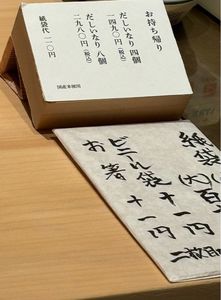 お持ち帰り
だしいなり 四個
一四九〇円(税込)
だしいなり 八個
二九八〇円(税込)
紙袋代 二二〇円
国産米使用
紙袋
(大)百
(小)十一円 二枚目
ビニール袋 十一円
お箸 十一円